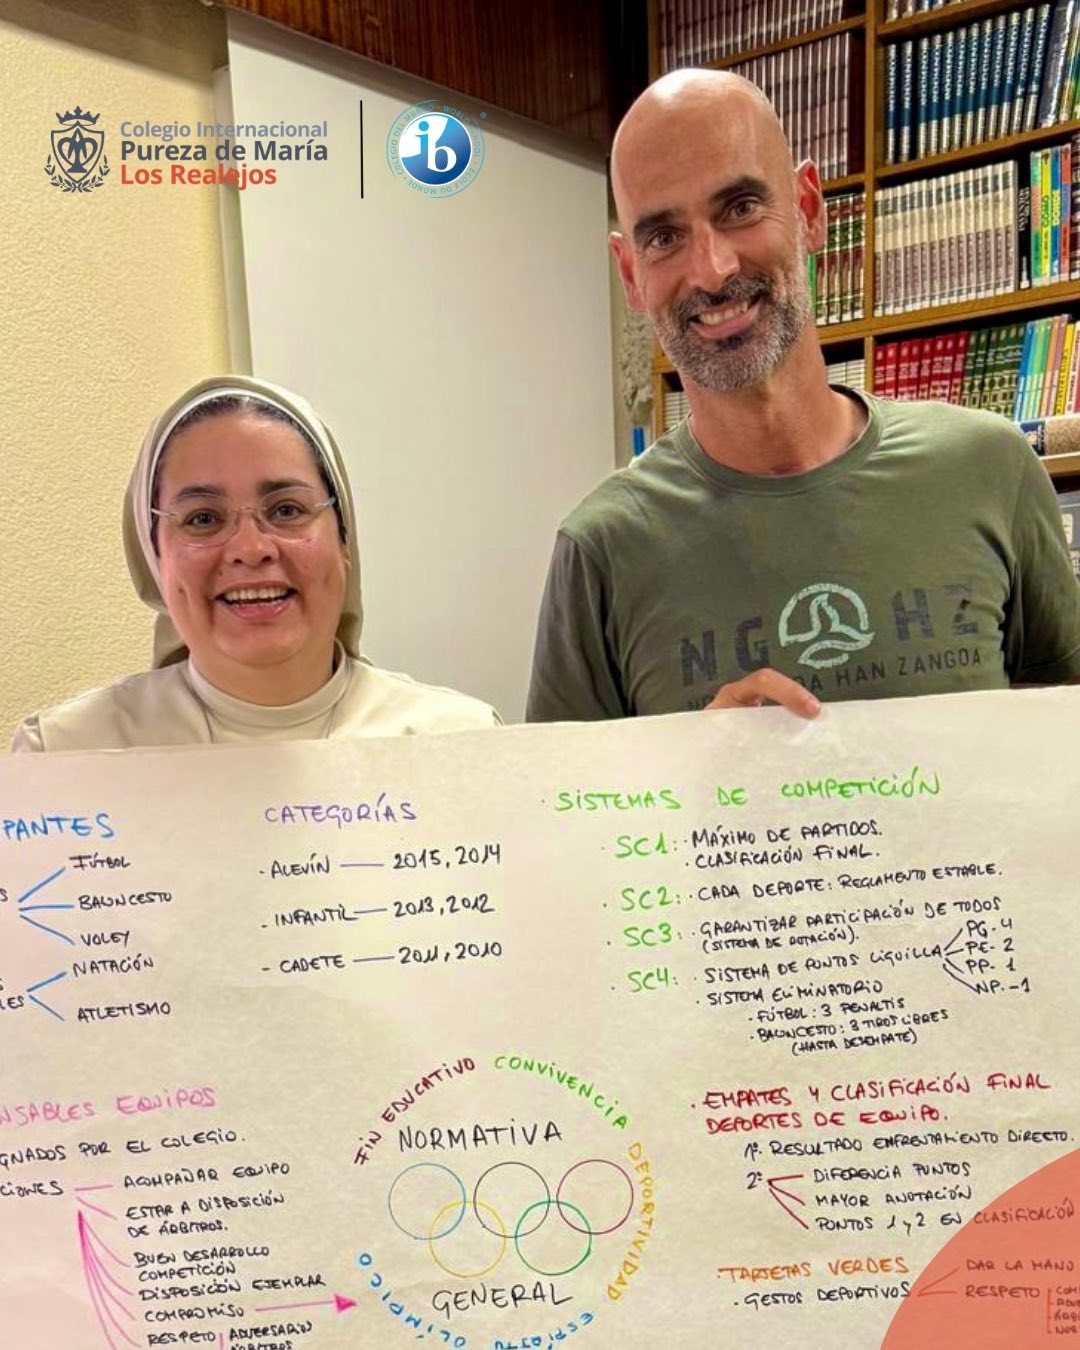 Colegio Internacional
Pureza de María
Los Realejos
COLEGIO DEL MUNDO · WORLD SCHOOL · ÉCOLE DU MONDE ·
ib
®
NG HZ
HAN ZANGOA
PANTES
FÚTBOL
BALONCESTO
VOLEY
NATACIÓN
ATLETISMO
CATEGORÍAS
- ALEVÍN — 2015, 2014
- INFANTIL — 2013, 2012
- CADETE — 2011, 2010
· SISTEMAS DE COMPETICIÓN
· SC1: · MÁXIMO DE PARTIDOS.
· CLASIFICACIÓN FINAL.
· SC2: · CADA DEPORTE: REGLAMENTO ESTABLE.
· SC3: · GARANTIZAR PARTICIPACIÓN DE TODOS
(SISTEMA DE ROTACIÓN).
· SC4: · SISTEMA DE PUNTOS LIGUILLA
PG. 4
PE- 2
PP- 1
NP. -1
· SISTEMA ELIMINATORIO
· FÚTBOL: 3 PENALTIS
· BALONCESTO: 3 TIROS LIBRES
(HASTA DESEMPATE)
NSABLES EQUIPOS
GNADOS POR EL COLEGIO.
CIONES
ACOMPAÑAR EQUIPO
ESTAR A DISPOSICIÓN
DE ÁRBITROS.
BUEN DESARROLLO
COMPETICIÓN
DISPOSICIÓN EJEMPLAR
COMPROMISO
RESPETO ADVERSARIOS
ÁRBITROS
FIN EDUCATIVO CONVIVENCIA DEPORTIVIDAD ESPÍRITU OLÍMPICO
NORMATIVA
GENERAL
· EMPATES Y CLASIFICACIÓN FINAL
DEPORTES DE EQUIPO.
1º. RESULTADO ENFRENTAMIENTO DIRECTO.
2º
DIFERENCIA PUNTOS
MAYOR ANOTACIÓN
PUNTOS 1 y 2 EN CLASIFICACIÓN
· TARJETAS VERDES
· GESTOS DEPORTIVOS
DAR LA MANO
RESPETO